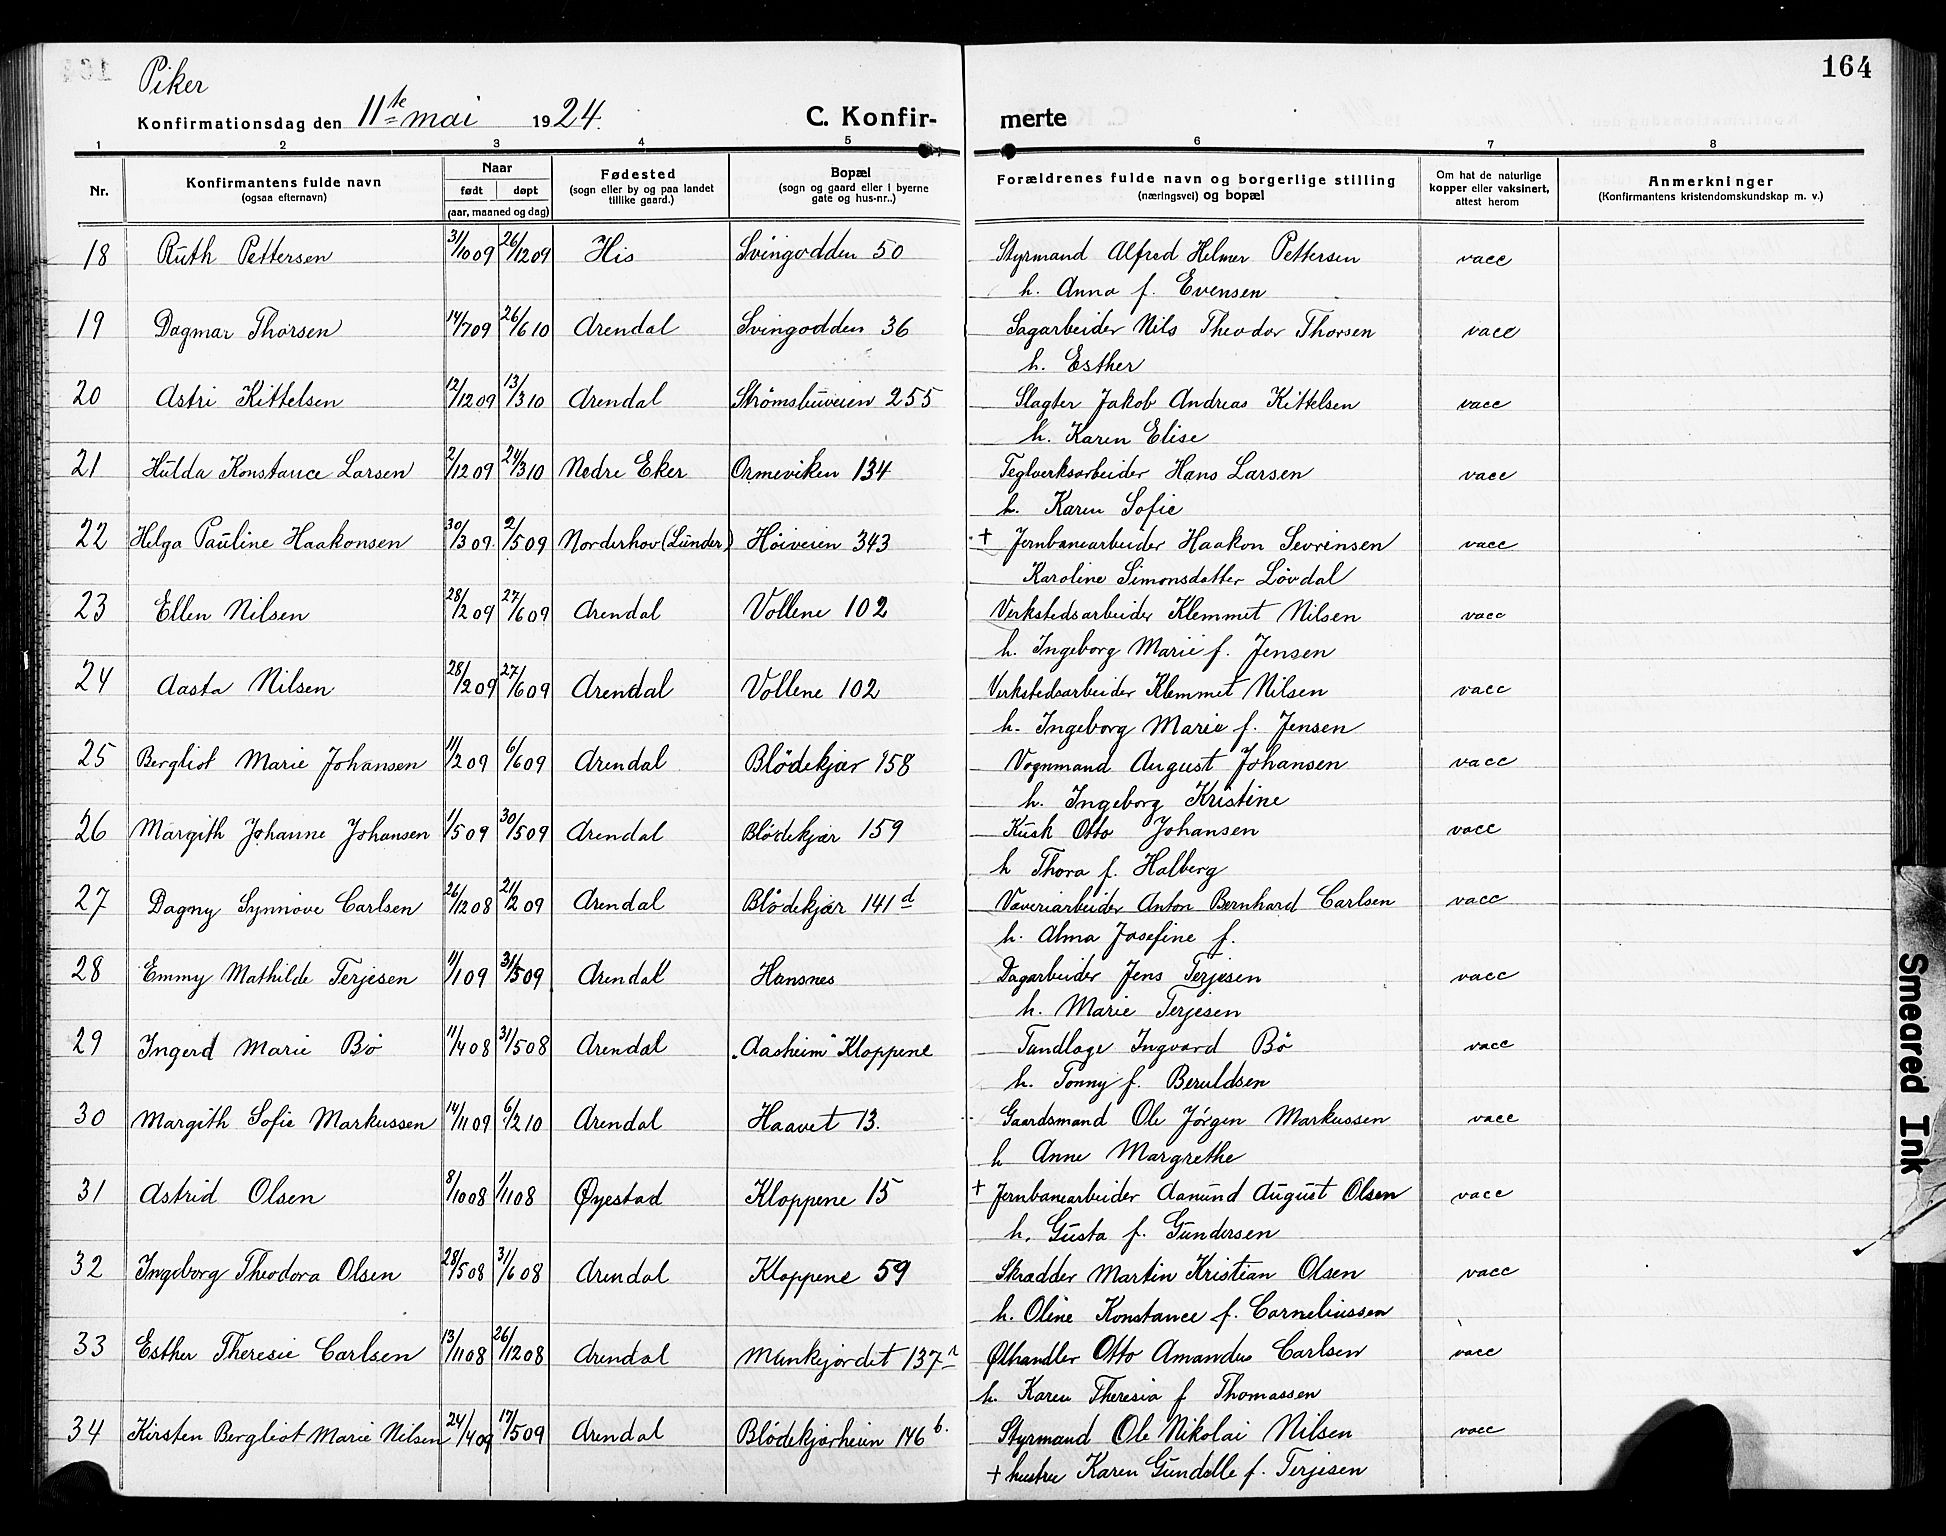 164
Piker
Konfirmationsdag den 11te mai 1924.
C. Konfir-merte
1 2 3 4 5 6 7 8
Nr. | Konfirmantens fulde navn (ogsaa efternavn) | Naar født døpt (aar, maaned og dag) | Fødested (sogn eller by og paa landet tillike gaard.) | Bopæl (sogn og gaard eller i byerne gate og hus-nr..) | Forældrenes fulde navn og borgerlige stilling (næringsvei) og bopæl | Om hat de naturlige kopper eller vaksinert, attest herom | Anmerkninger (Konfirmantens kristendomskundskap m. v.)
18 Ruth Pettersen 31/10 09 26/12 09 His Svingodden 50 Styrmand Alfred Helmer Pettersen vacc
h. Anna f. Evensen
19 Dagmar Thorsen 14/7 09 26/6 10 Arendal Svingodden 36 Sagarbeider Nils Theodor Thorsen vacc
h. Esther
20 Astri Kittelsen 12/12 09 13/3 10 Arendal Strømsbuveien 255 Slagter Jakob Andreas Kittelsen vacc
h. Karen Elise
21 Hulda Konstance Larsen 2/12 09 24/3 10 Nedre Eker Ormeviken 134 Teglverksarbeider Hans Larsen vacc
h. Karen Sofie
22 Helga Pauline Haakonsen 30/3 09. 2/5 09 Norderhov (Lunder) Høiveien 343 + Jernbanearbeider Haakon Sevrinsen vacc
Karoline Simonsdatter Løvdal
23 Ellen Nilsen 28/2 09 27/6 09 Arendal Vollene 102 Verkstedsarbeider Klemmet Nilsen vacc
h. Ingeborg Marie f. Jensen
24 Aasta Nilsen 28/2 09 27/6 09 Arendal Vollene 102 Verkstedsarbeider Klemmet Nilsen vacc
h. Ingeborg Marie f. Jensen
25 Bergliot Marie Johansen 11/2 09 6/6 09 Arendal Blødekjær 158 Vognmand August Johansen vacc
h. Ingeborg Kristine
26 Margith Johanne Johansen 1/5 09 30/5 09 Arendal Blødekjær 159 Kusk Otto Johansen vacc
h Thora f. Halberg
27 Dagny Synnøve Carlsen 26/12 08 21/2 09 Arendal Blødekjær 141 d Væveriarbeider Anton Bernhard Carlsen vacc
h. Alma Josefine f.
28 Emmy Mathilde Terjesen 11/1 09 31/5 09 Arendal Hansnes Dagarbeider Jens Terjesen vacc
h. Marie Terjesen
29 Ingerd Marie Bø 11/4 08 31/5 08 Arendal „Aasheim" Kloppene Tandlæge Ingvard Bø vacc
h. Tonny f. Beruldsen
30 Margith Sofie Markussen 14/11 09 6/2 10 Arendal Haavet 13. Gaardsmand Ole Jørgen Markussen vacc
h Anne Margrethe
31 Astrid Olsen 8/10 08 1/11 08 Øyestad Kloppene 15 + Jernbanearbeider Aanund August Olsen vacc
h. Gusta f. Gundersen
32 Ingeborg Theodora Olsen 28/5 08 31/6 08 Arendal Kloppene 59 Skrædder Martin Kristian Olsen vacc
h. Oline Konstance f. Corneliussen
33 Esther Theresie Carlsen 13/11 08 26/12 08 Arendal Munkejordet 137 Ølhandler Otto Amandus Carlsen vacc
h. Karen Theresia f Thomassen
34 Kirsten Bergliot Marie Nilsen 24/4 09 17/5 09 Arendal Blødekjærheien 146 b. Styrmand Ole Nikolai Nilsen vacc
+ hustru Karen Gundelle f. Terjesen
Smeared Ink